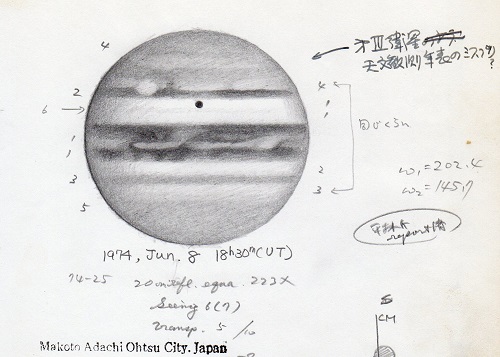 4
2
6 →
1
1
3
5
← 才Ⅲ衛星の
天文観測年表のミスプリ?
4
2
3
同じくらい
ω₁=202.4
ω₂=145.7
report済
1974, Jun. 8 18h30m(UT)
74-25 20cm refl. equa. 223X
Seeing 6(7)
transp. 5/10
S
CM
Makoto Adachi Ohtsu City. Japan